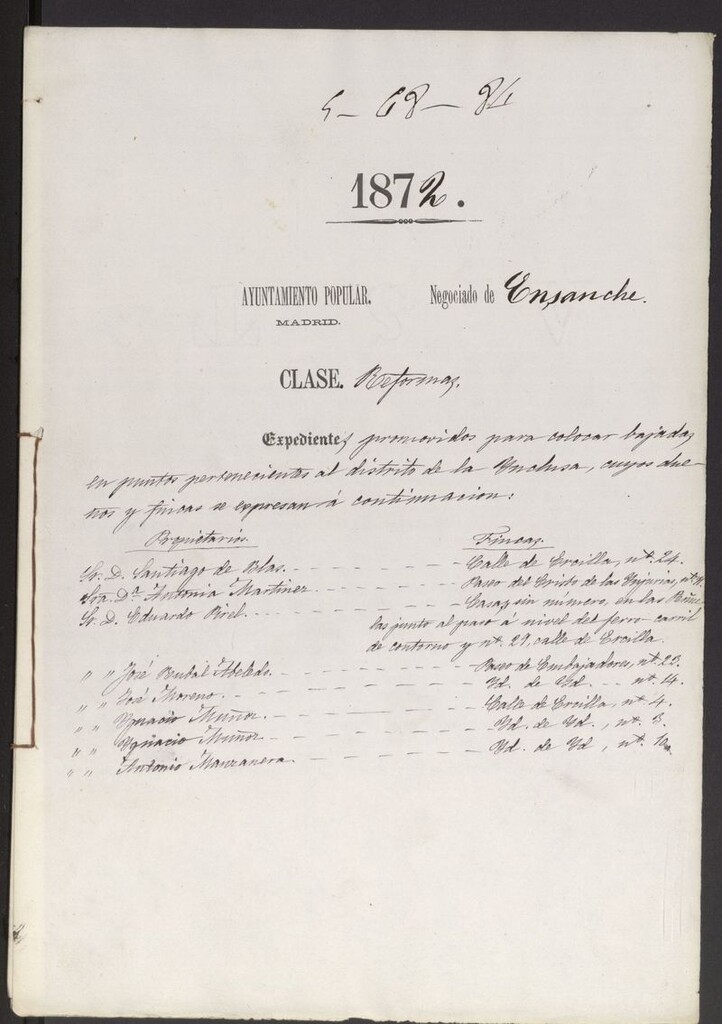 5-68-84
1872.
AYUNTAMIENTO POPULAR.
MADRID.
Negociado de Ensanche.
CLASE. Reformas.
Expedientes promovidos para colocar bajadas
en puntos pertenecientes al distrito de la Ynclusa, cuyos due-
ños y fincas se expresan á continuacion:
Propietarios. Fincas.
Sr. D. Santiago de Blas. Calle de Ercilla, nº. 24.
Sra. Dª Antonia Martinez. Paseo del Cristo de las Ynjurias, nº.
Sr. D. Eduardo Casas sin número, en las
las junto al paso á nivel del ferro-carril
de contorno y nº. 29, calle de Ercilla.
" " José Abeledo. Paseo de Embajadores, nº. 23.
" " José Moreno. Yd. de Yd. nº. 4.
" " Ygnacio Muñoz. Calle de Ercilla, nº. 4.
" " Ygnacio Muñoz. Yd. de Yd., nº. 3.
" " Antonio Manzanera. Yd. de Yd, nº.